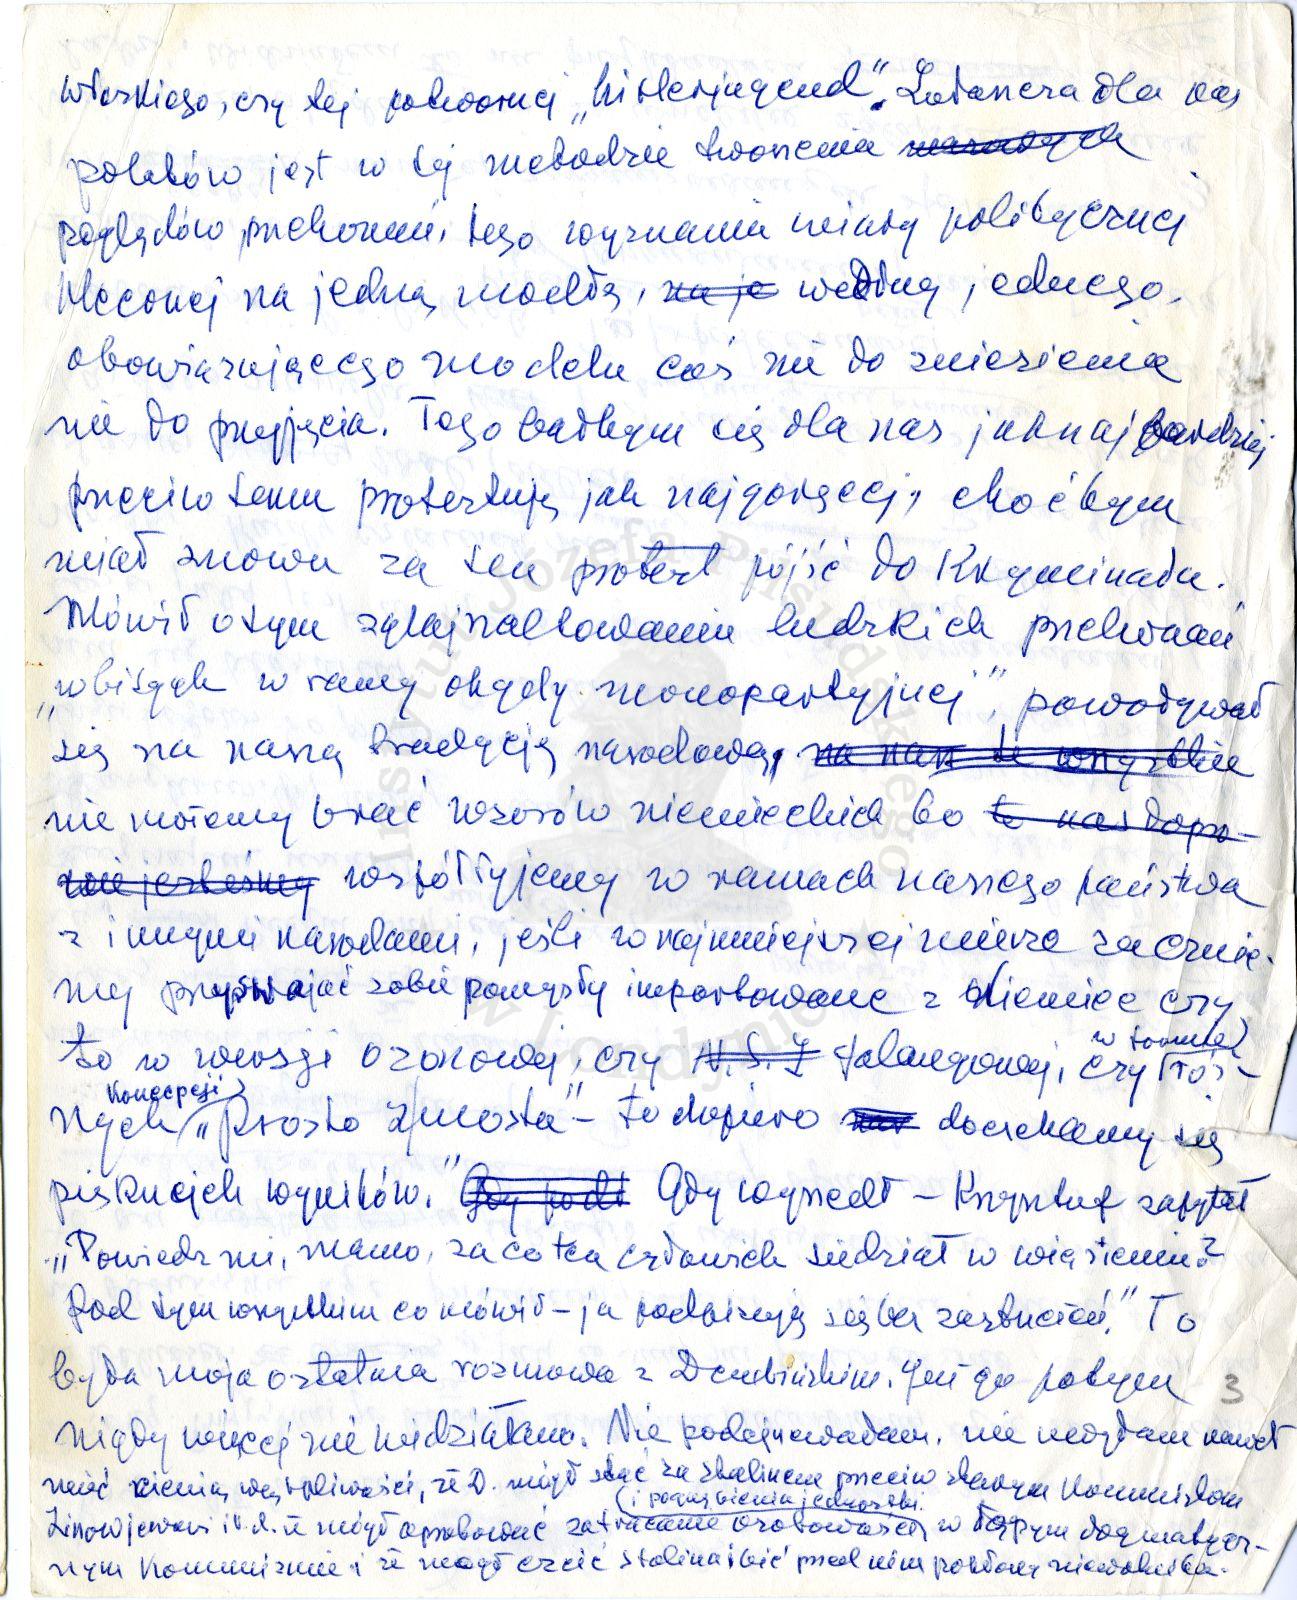 włoskiego, czy tej potwornej „hitlerjugend”. Zwłaszcza dla nas
polaków jest w tej metodzie tworzenia
poglądów, przekonań, tego wyznania wiary politycznej
kleconej na jedną modłę, na je według jednego,
obowiązującego modelu coś nie do zniesienia
nie do przyjęcia. Tego bałbym się dla nas jaknajbardziej
przeciw temu protestuję jak najgoręcej, choćbym
miał znowu za ten protest pójść do Kryminału.
Mówił o tym zglajszachtowaniu ludzkich przekonań
„wbitych w ramy ohydy monopartyjnej”, powoływał
się na naszą tradycję narodową, na nas te wszystkie
nie możemy brać wzorów niemieckich bo to nas
nie jesteśmy współżyjemy w ramach naszego państwa
z innymi narodami, jeśli w najmniejszej mierze zacznie-
my przyswajać sobie pomysły importowane z Niemiec czy
to w wersji ozonowej, czy falangowej, czy w formie róż-
nych koncepcji „Prosto z mostu” – to dopiero doczekamy się
pięknych wyników.” Gdy wyszedł – Krzysztof zapytał
„Powiedz mi, mamo, za co ten człowiek siedział w więzieniu?
Pod tym wszystkim co mówił – ja podpisuję się bez zastrzeżeń.” To
była moja ostatnia rozmowa z Dembińskim. Już go potym
nigdy więcej nie widziałam. Nie podejrzewałam, nie mogłam nawet
mieć cienia wątpliwości, że D. mógł stać za stalinem przeciw starym Kommunistom
Zinowjewowi i t.d. że mógł aprobować zatracanie osobowości (i pognębienia jednostki) w tępym dogmatycz-
nym Kommunizmie i że mógł czcić Stalina i bić przed nim pokłony niewolnika.
3
Instytut Józefa Piłsudskiego
w Londynie